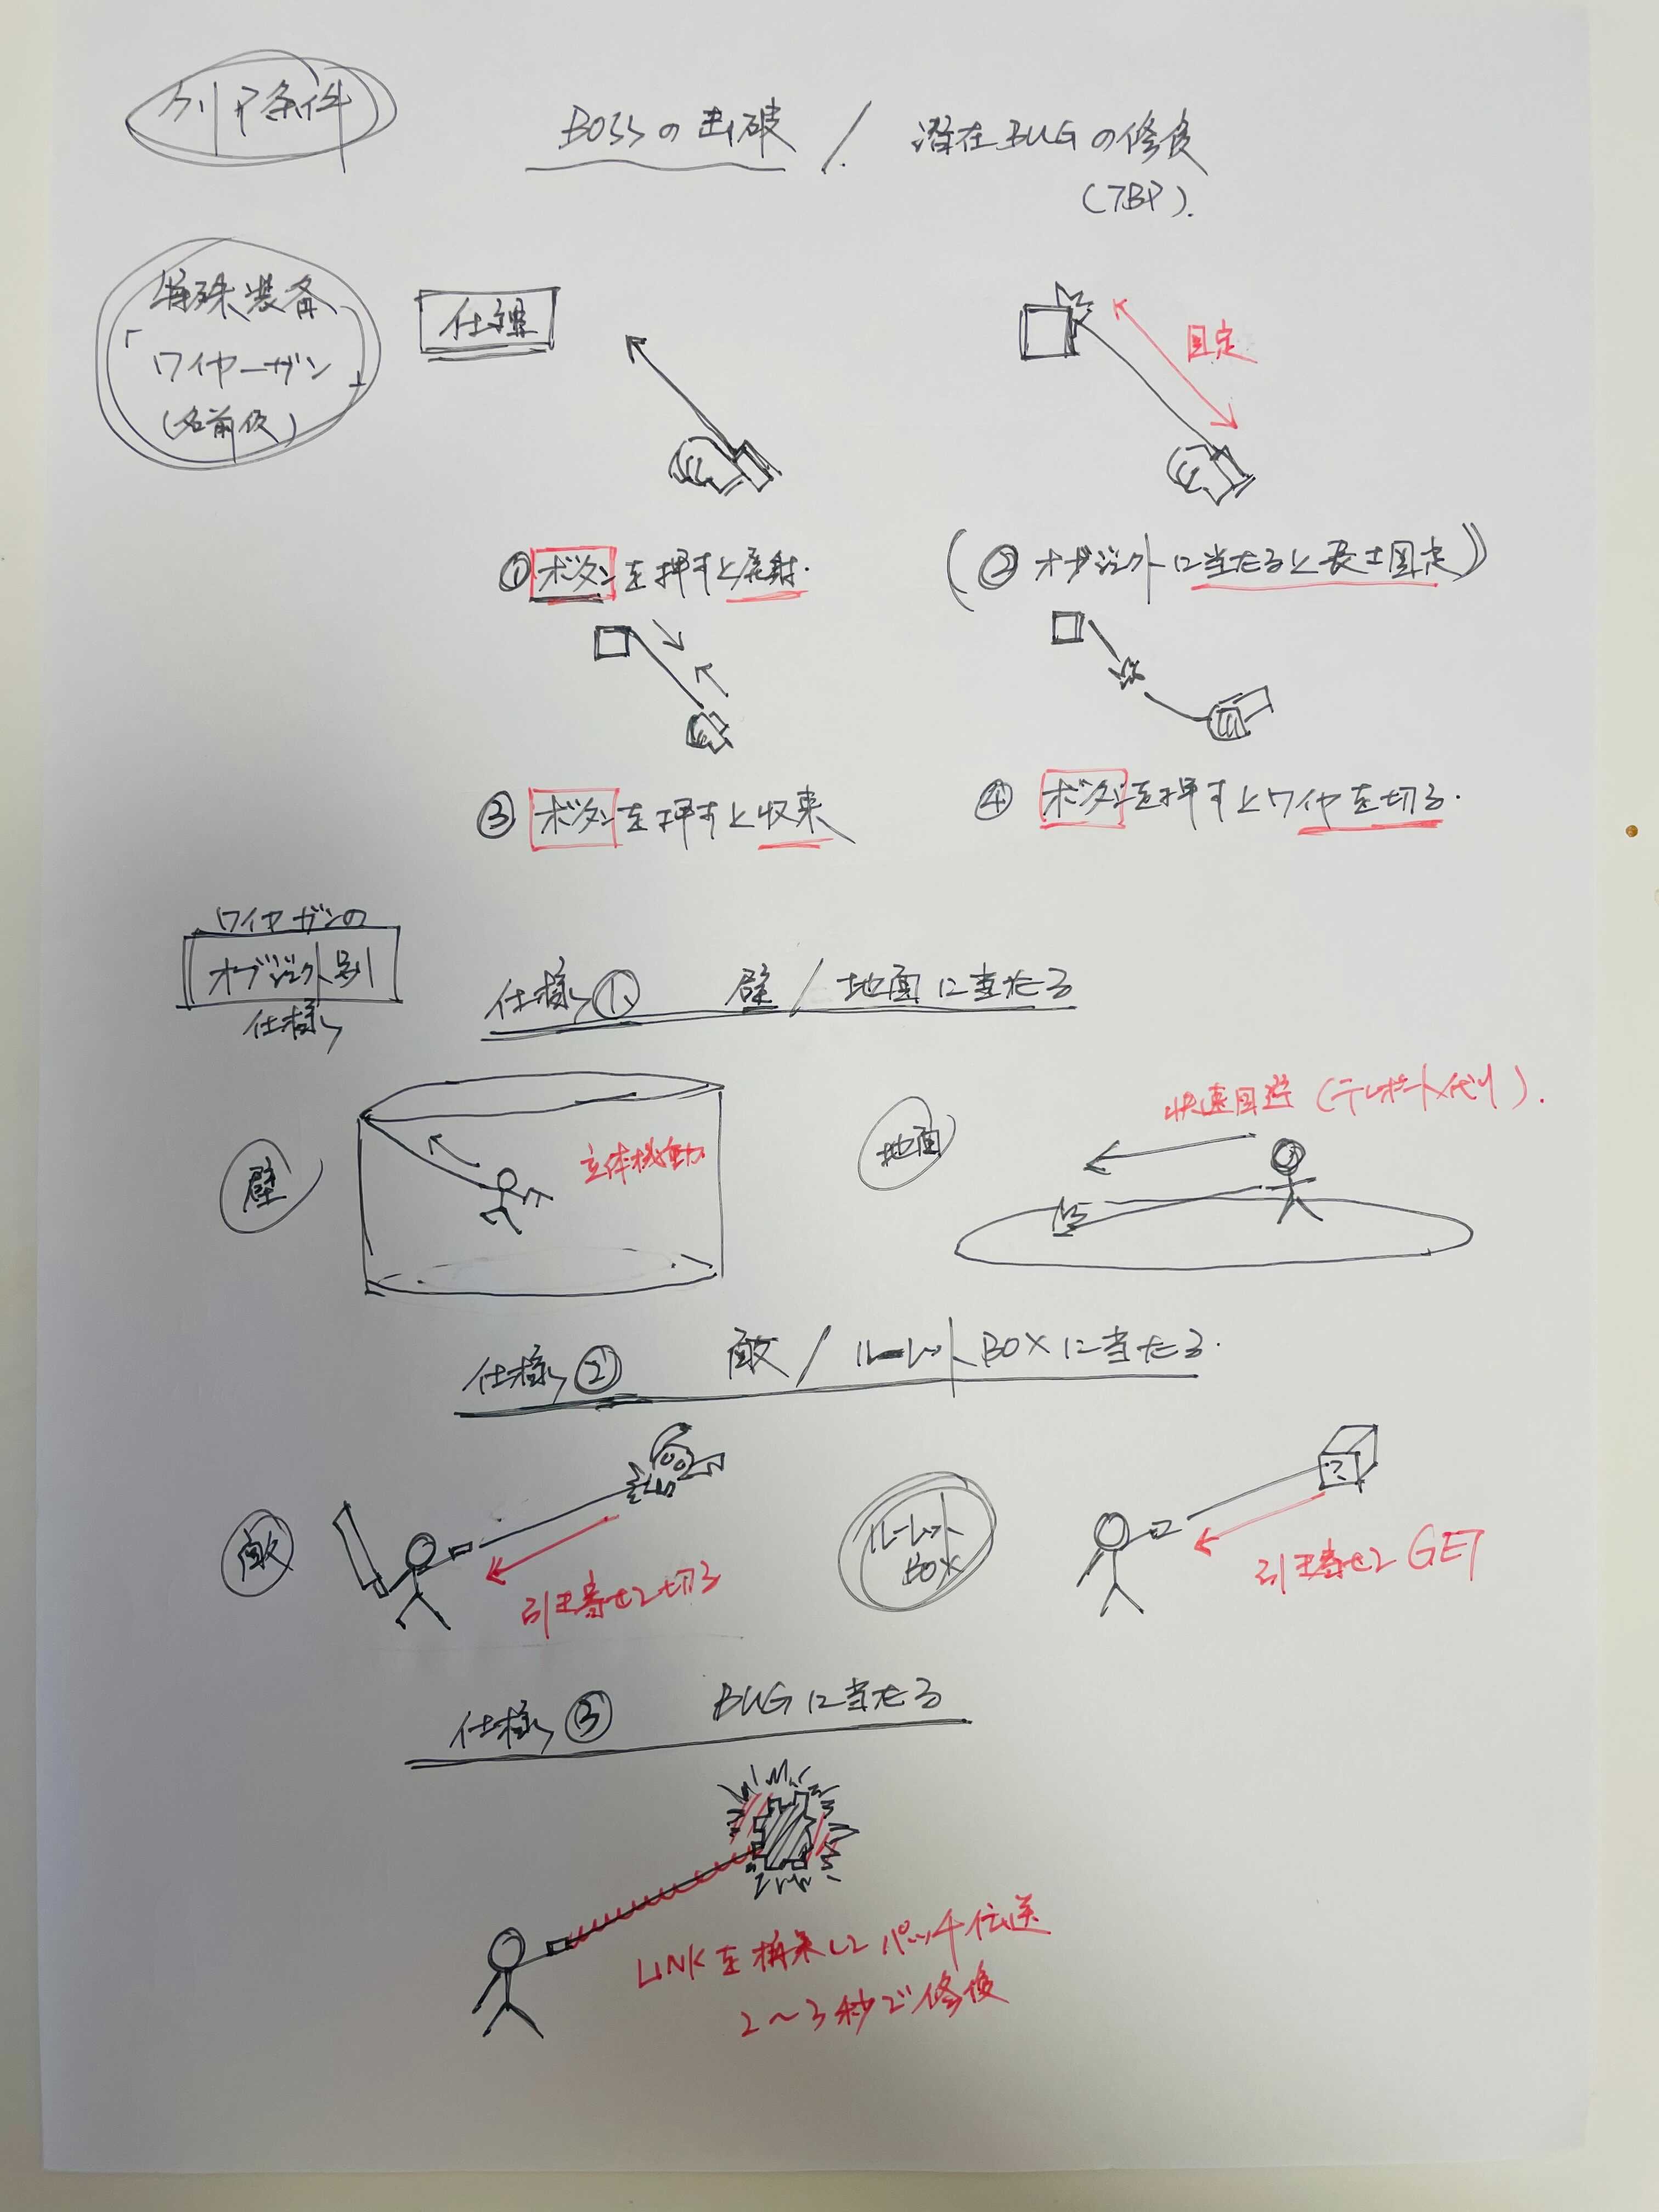 クリア条件
BOSSの击破 / 潜在BUGの修復
(TBD).
特殊装備
「ワイヤーガン」
(名前仮)
仕様
固定
①ボタンを押すと発射.
(②オブジェクトに当たると長さ固定)
③ボタンを押すと収束
④ボタンを押すとワイヤを切る.
ワイヤガンの
オブジェクト別
仕様
仕様① 壁 / 地面に当たる
壁
立体機動
地面
快速回避 (テレポート代り).
仕様② 敵 / ルーレットBOXに当たる.
敵
引き寄せて切る
ルーレット
BOX
引き寄せて GET
仕様③ BUGに当たる
LINKを構築してパッチ伝送
2〜3秒で修復